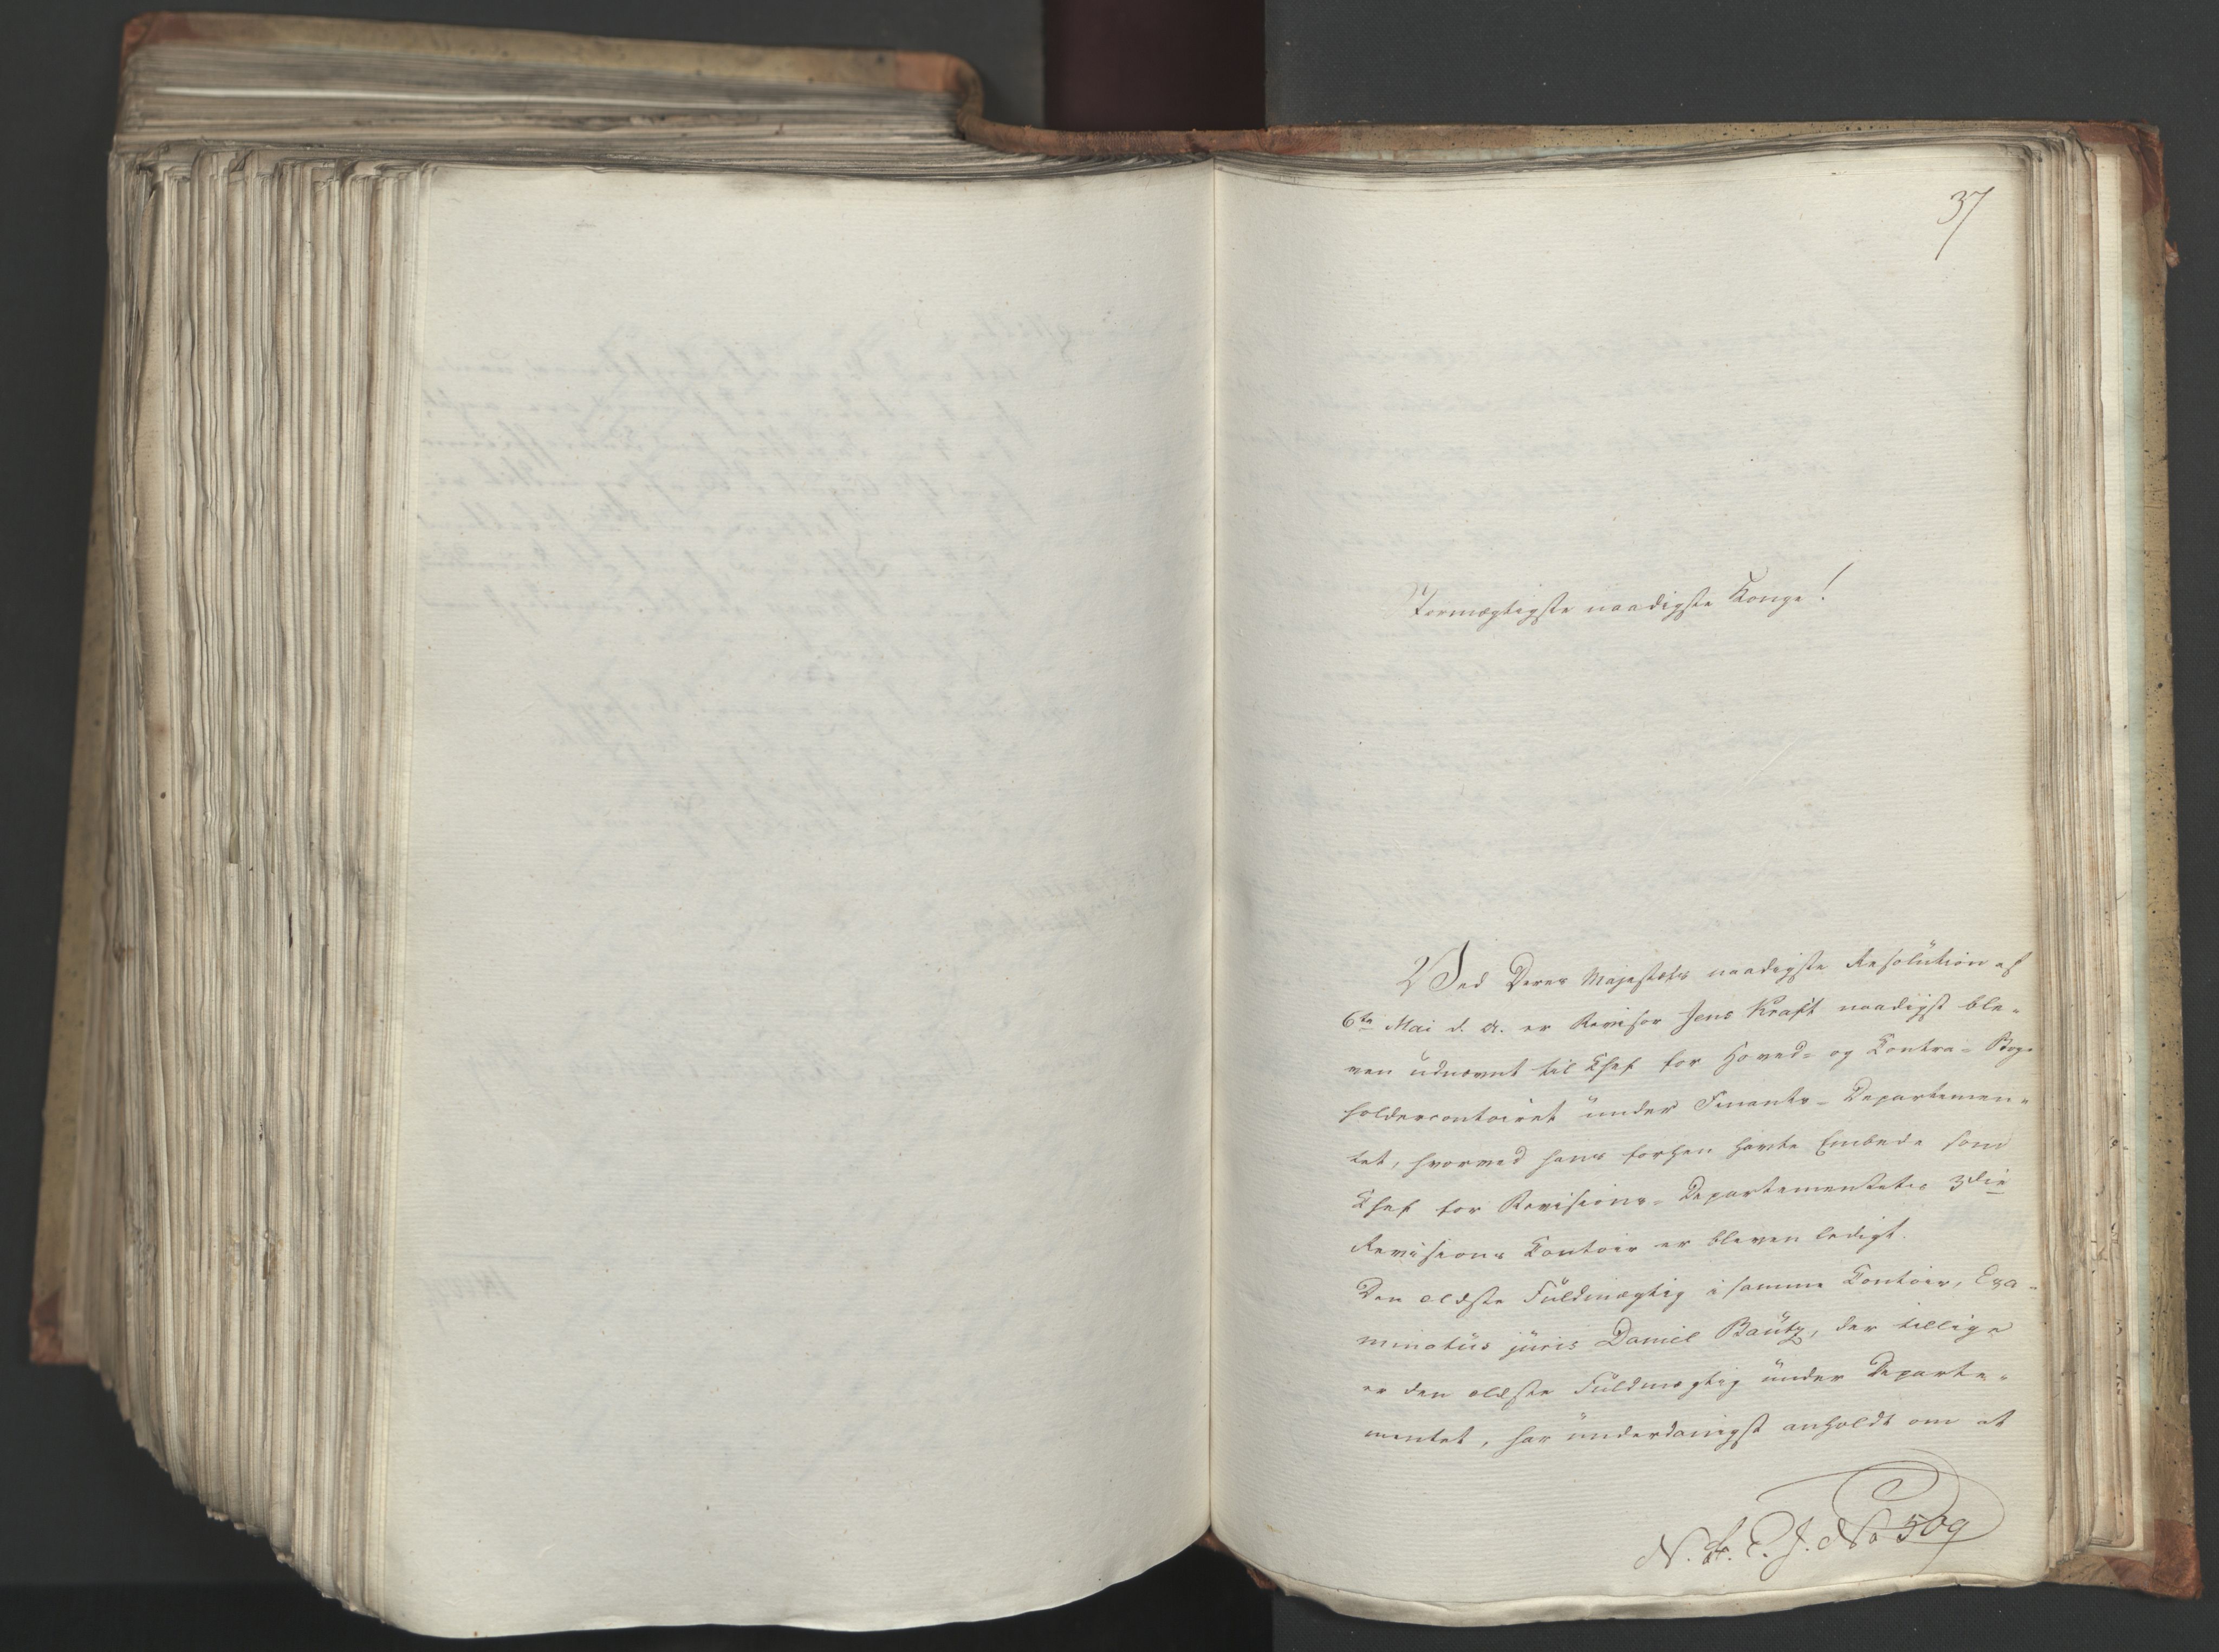 37
Stormægtigste naadigste Konge!
Ved Deres Majestæts naadigste Resolution af
6te Mai d. A. er Revisor Jens Kraft naadigst ble-
ven udnævnt til Chef for Hoved- og Contra-Bog-
holdercontoiret under Finants-Departemen-
tet, hvorved hans forhen havte Embede som
Chef for Revisions-Departementets 3die
Revisions Contoir er bleven ledigt.
Den ældste Fuldmægtig i samme Contoir, Exa-
minatus juris Daniel Bautz, der tillige
er den ældste Fuldmægtig under Departe-
mentet, har underdanigst anholdt om at
N. A. E. J. No 509